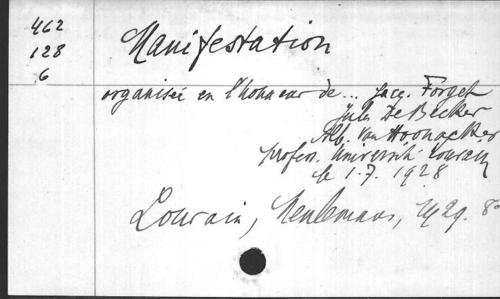 462
128
6
Manifestation
organisée en l'honneur de... Jacq. Forget
Jules De Becker
Alb. Van Hoonacker
profess. Université Louvain
le 1.7.1928
Louvain, Meulemans, 1929. 8°